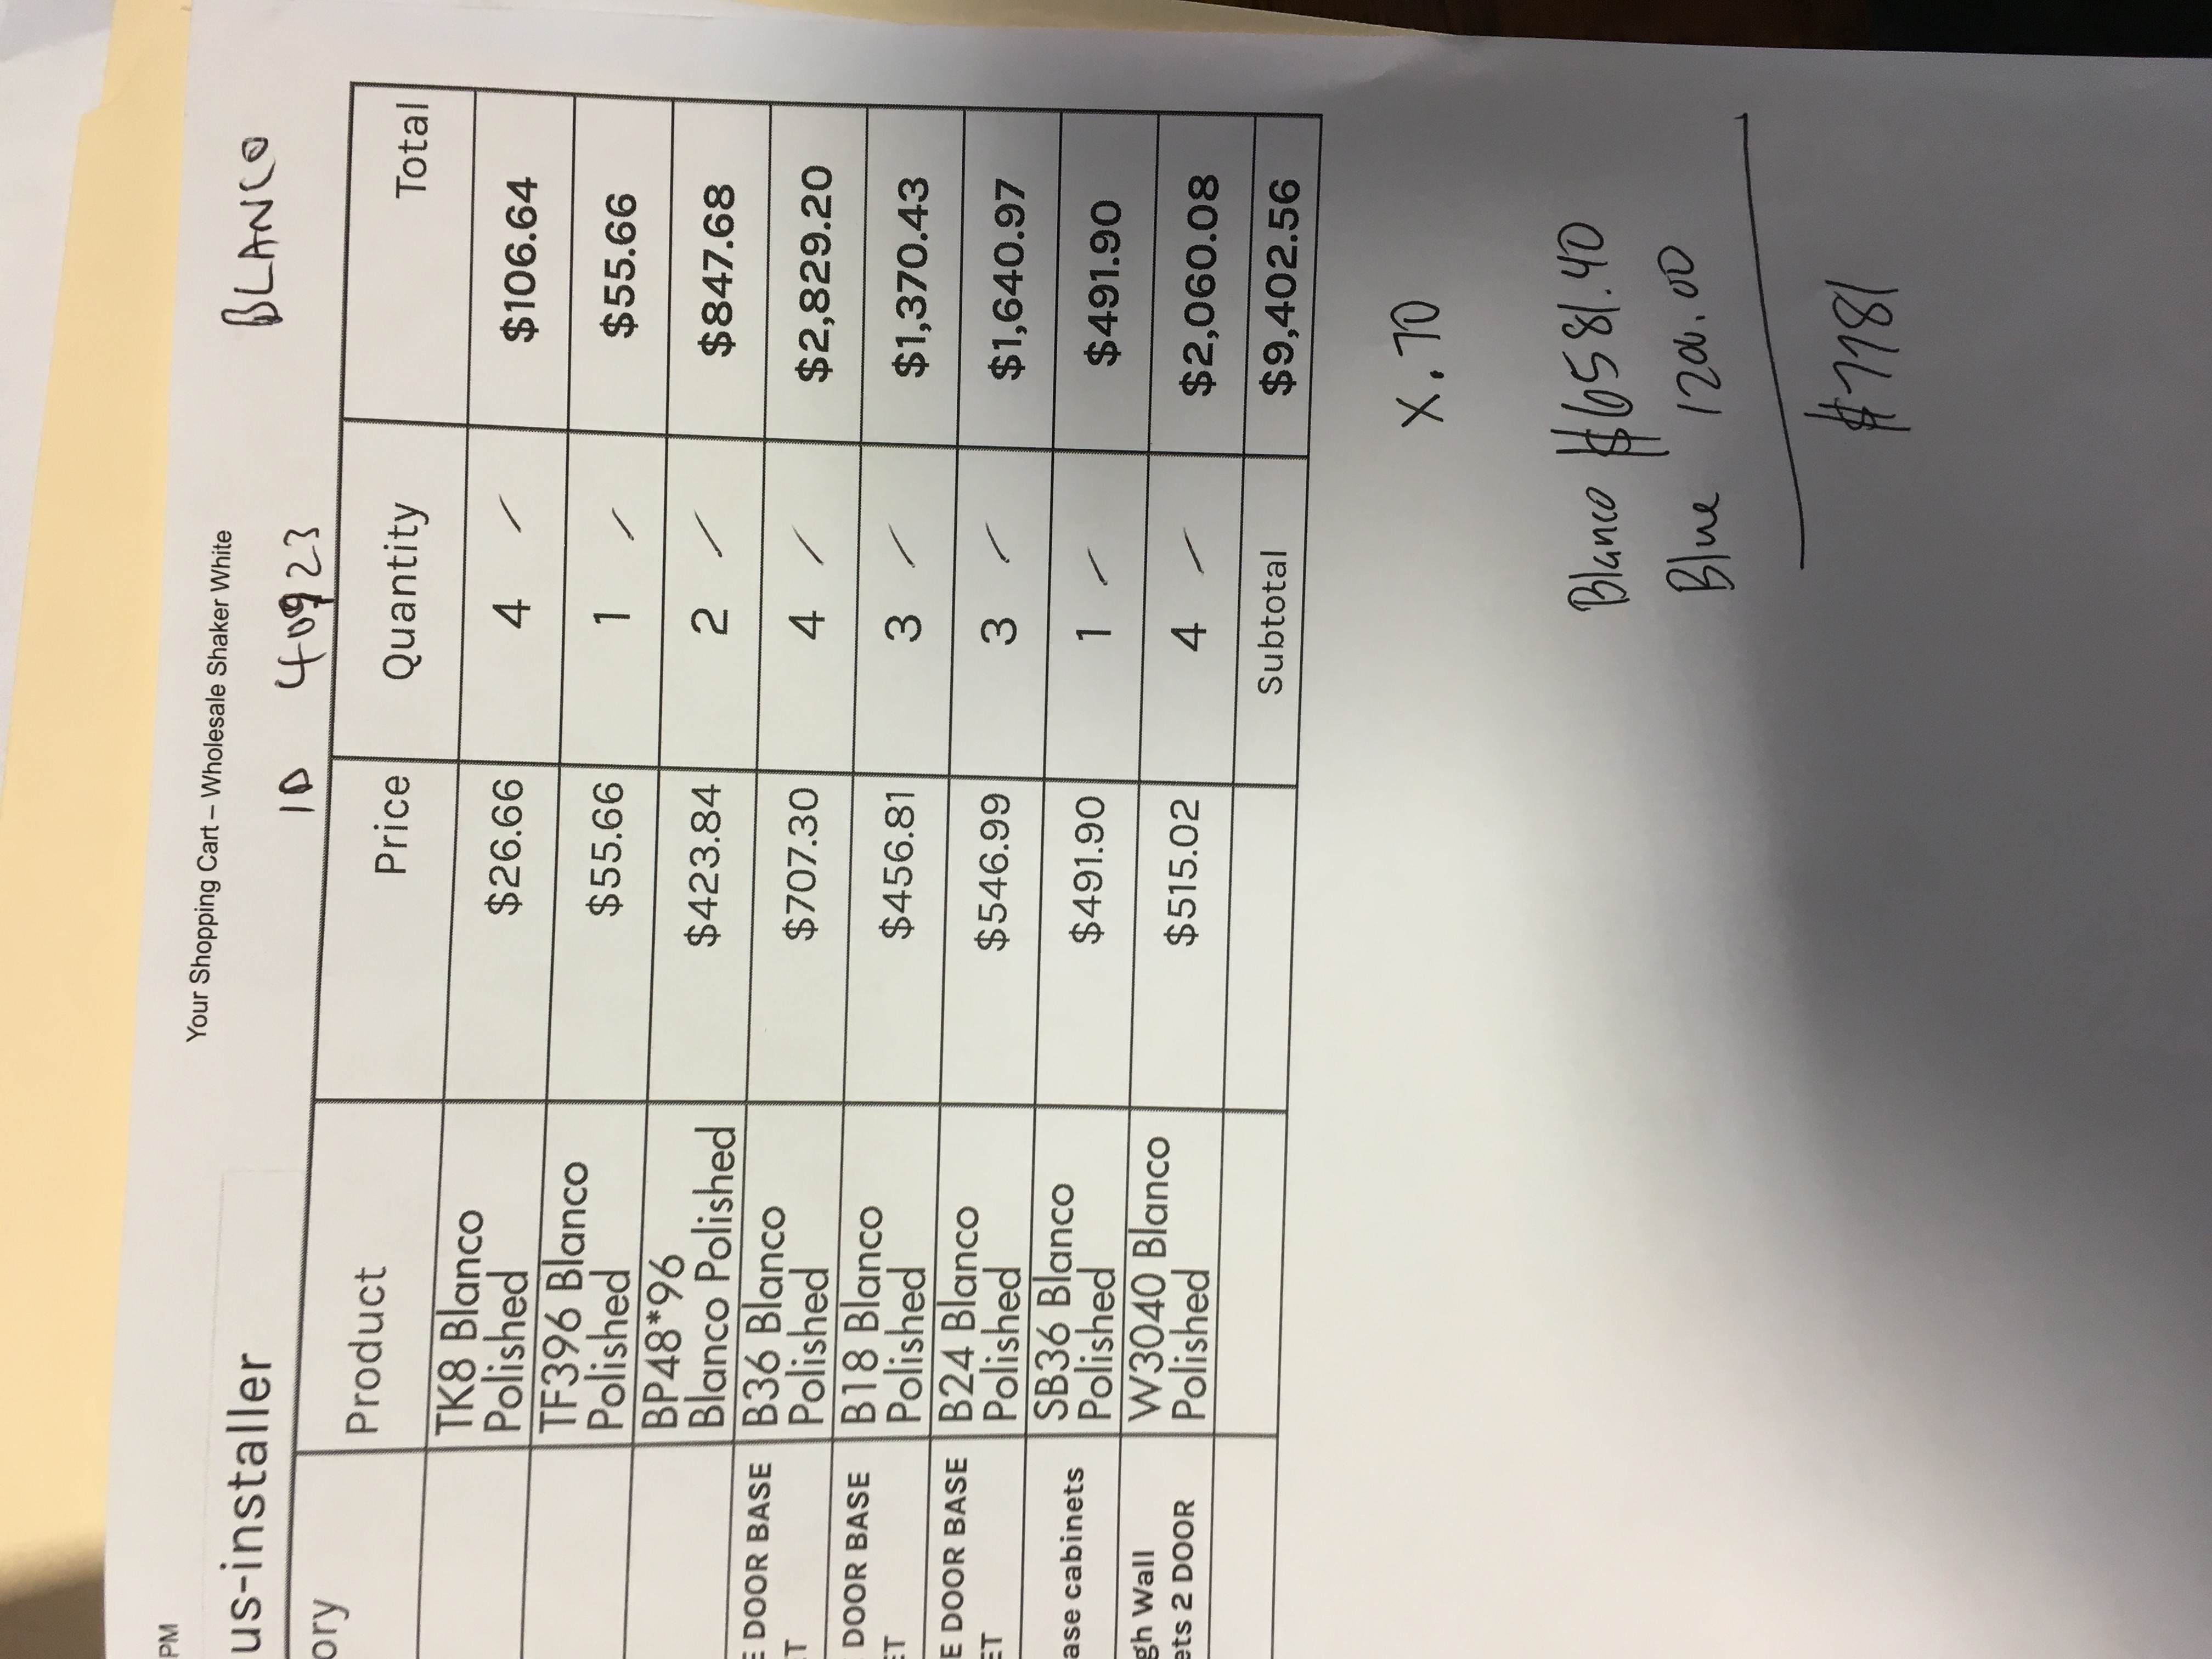 PM
Your Shopping Cart – Wholesale Shaker White
BLANCO
us-installer
ID 40923
ory Product Price Quantity Total
TK8 Blanco Polished $26.66 4 / $106.64
TF396 Blanco Polished $55.66 1 / $55.66
BP48*96 Blanco Polished $423.84 2 / $847.68
E DOOR BASE T B36 Blanco Polished $707.30 4 / $2,829.20
DOOR BASE ET B18 Blanco Polished $456.81 3 / $1,370.43
E DOOR BASE ET B24 Blanco Polished $546.99 3 / $1,640.97
ase cabinets SB36 Blanco Polished $491.90 1 / $491.90
gh Wall ets 2 DOOR W3040 Blanco Polished $515.02 4 / $2,060.08
Subtotal $9,402.56
X.70
Blanco $6581.40
Blue 1200.00
$7781